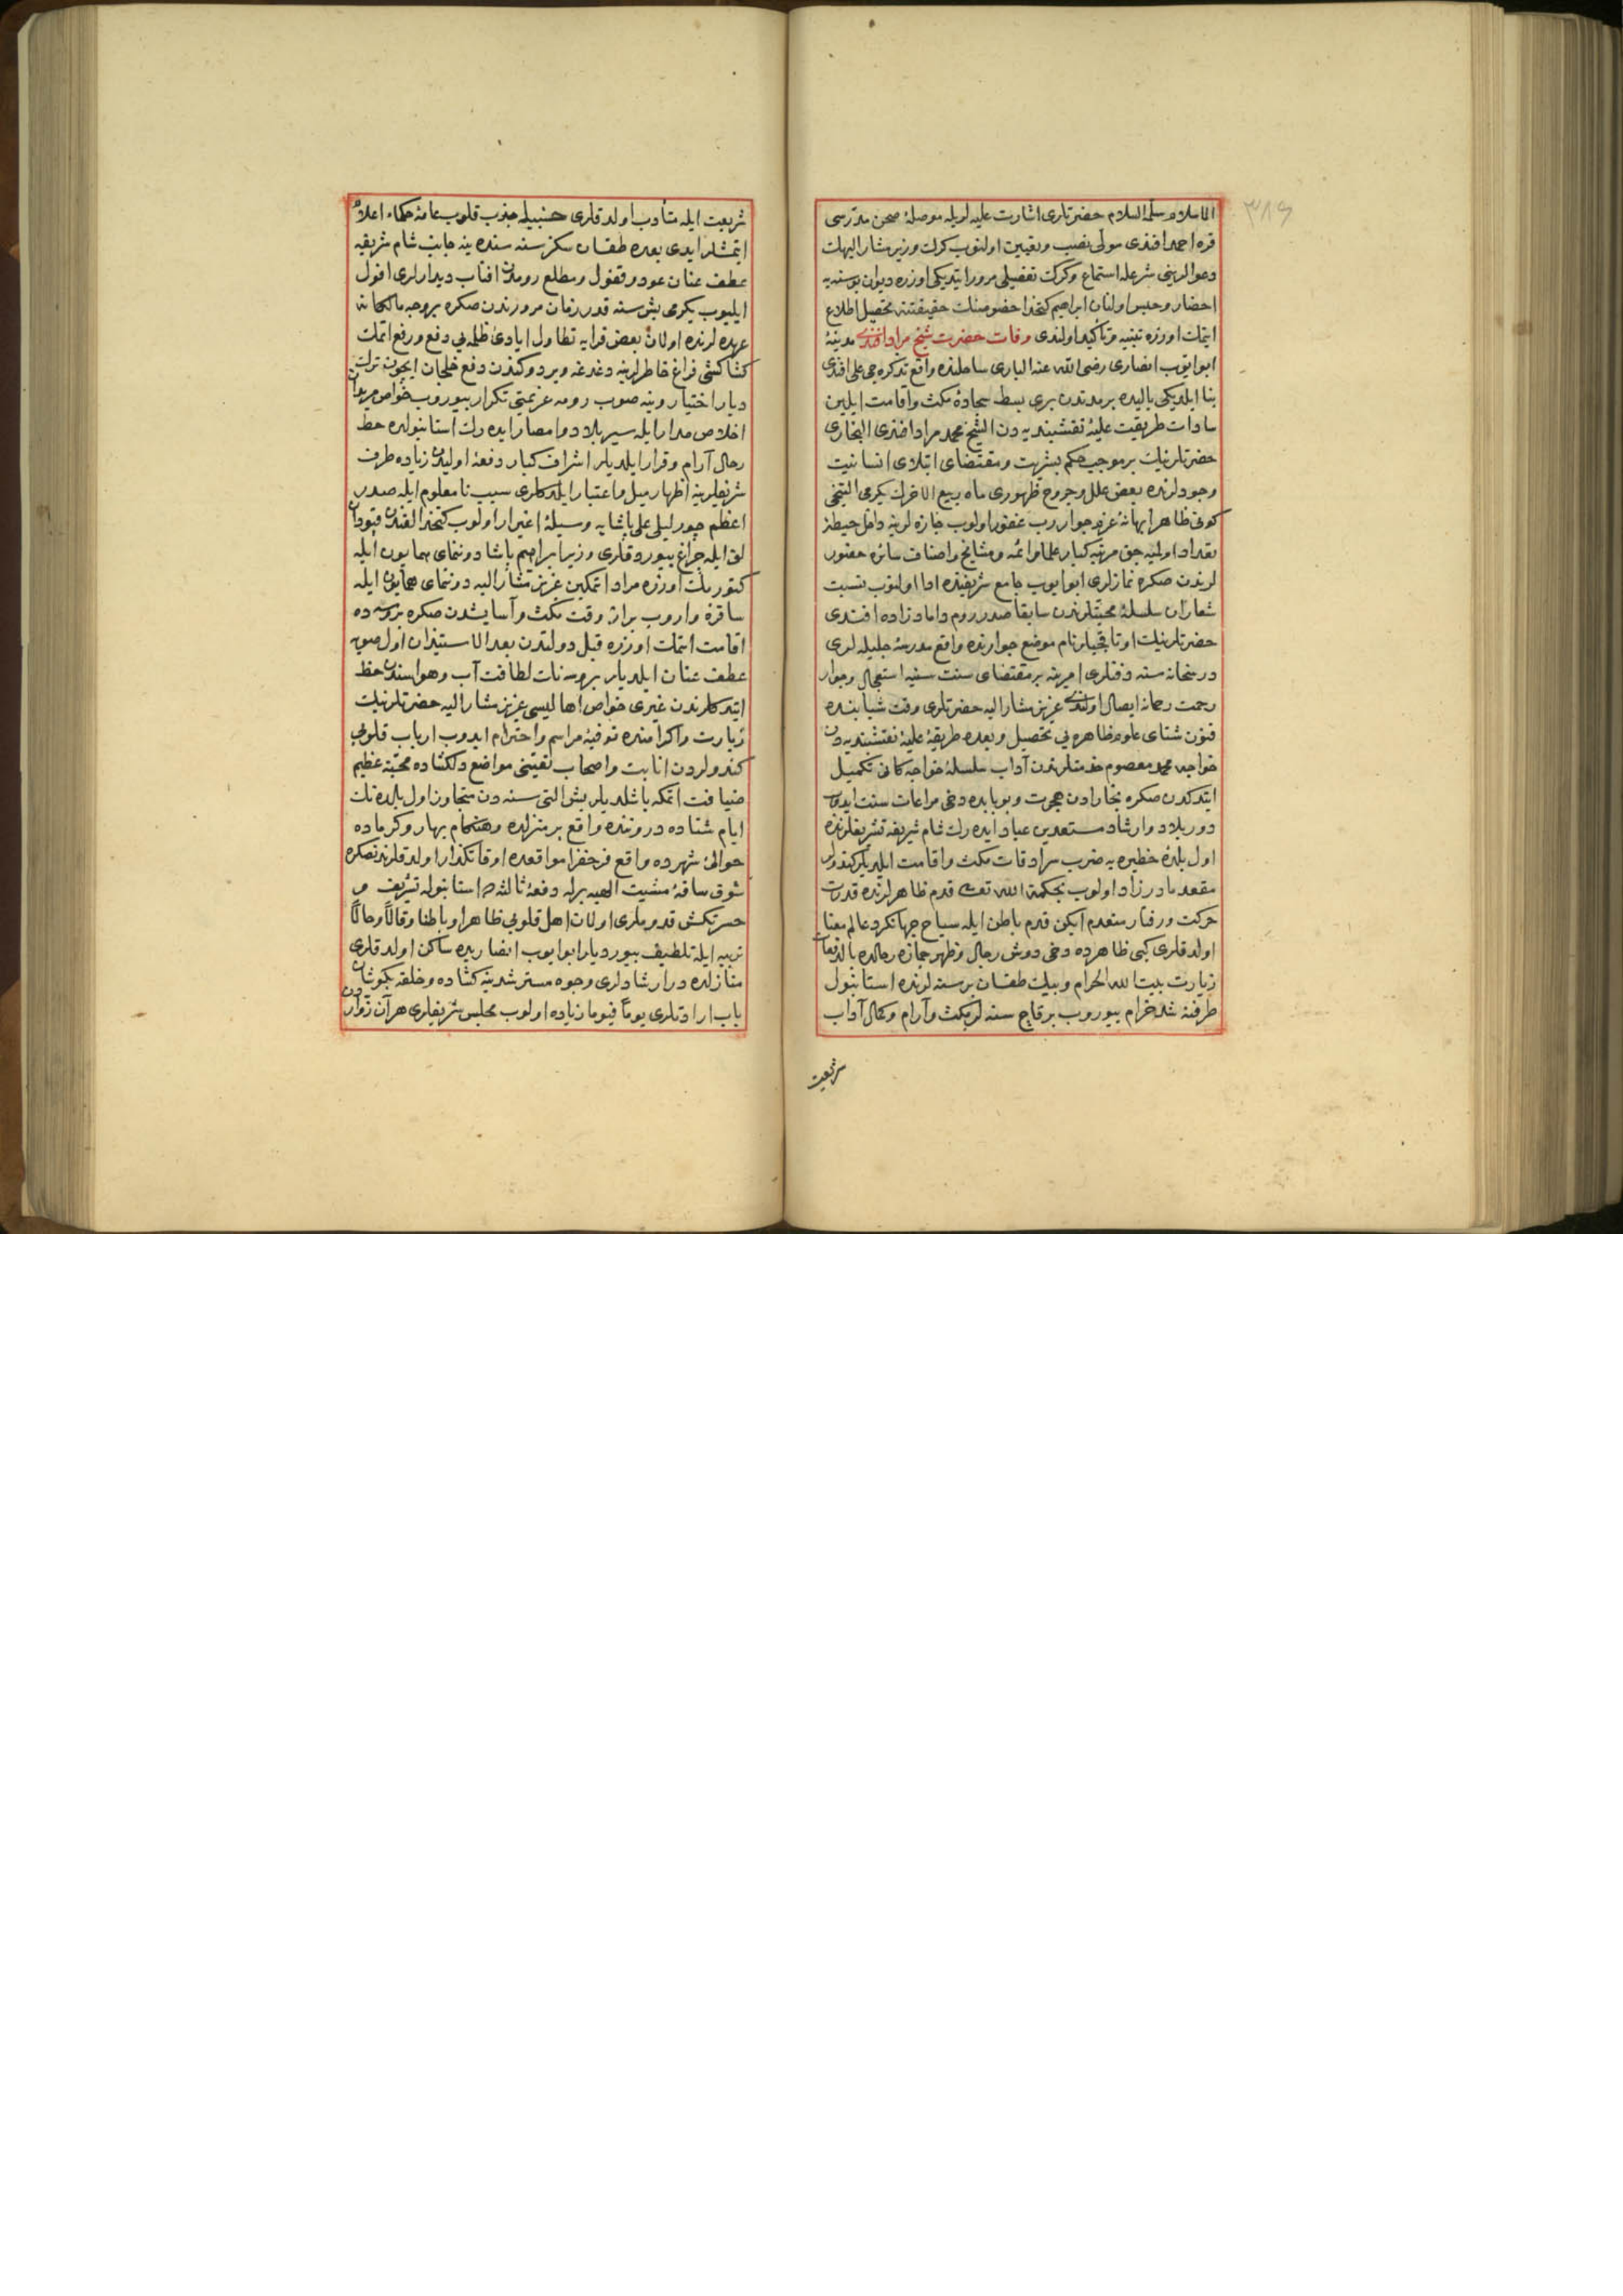 ٣٨٩
الاسلام سلمه السلام حضرتلری اشارت علیه لریله موصلهٔ صحن مدرسی
قره احمد افندی مولی نصب وتعیین اولنوب کرك وزیر مشار الیهك
دعوالرینی شرعله استماع وکرك تفصیلی مرور ایتدیکی اوزره دیوان بوسنه‌یه
احضار وحبس اولنان ابراهیم کتخدا خصومنك حقیقتنه تحصیل اطلاع
ایتمك اوزره تنبیه وتأکید اولندی وفات حضرت شیخ مراد افندی مدینهٔ
ابو ایوب انصاری رضی الله عنه الباری ساحلنده واقع تذکره جی علی افندی
بنا ایلدیکی یالیده بر مدتدن بری بسط سجادهٔ مکث واقامت ایلین
سادات طریقت علیهٔ نقشبندیه دن الشیخ محمد مراد افندی البخاری
حضرتلرینك بر موجب حکم بشریت ومقتضای ابتلای انسانیت
وجودلرنده بعض علل وجروح ظهوری ماه ربیع الاخرك یکرمی التنجی
کونی ظاهرا بهانهٔ عزم جوار رب غفور اولوب جنازه لرینه داخل حیطهٔ
تعداد اولمیه جق مرتبه کبار علما وائمه ومشایخ واصناف سائره حضور
لرندن صکره نمازلری ابو ایوب جامع شریفنده ادا اولنوب نسبت
شعاران سلسلهٔ محبتلرندن سابقا صدر روم داماد زاده افندی
حضرتلرینك اوتاقجیلر نام موضع جوارنده واقع مدرسهٔ جلیله لری
درسخانه سنه دفنلری امرینه بر مقتضای سنت سنیه استعجال وجوار
رحمت رحمانه ایصال اولندی عزیز مشار الیه حضرتلری وقت شبابنده
فنون شتای علوم ظاهره یی تحصیل وبعده طریقهٔ علیهٔ نقشبندیه دن
خواجه محمد معصوم خدمتلرندن آداب سلسلهٔ خواجه کانی تکمیل
ایتدکدن صکره بخارادن هجرت وبو بابده دخی مراعات سنت ایدوب
دور بلاد وارشاد مستعدین عباد ایده رك شام شریفه تشریفلرنده
اول بلدهٔ خطیره یه ضرب سرادقات مکث واقامت ایلدیلر کندولر
مقعد مادرزاد اولوب بحکمة الله تعالی قدم ظاهرلرنده قدرت
حرکت ورفتار منعدم ایکن قدم باطن ایله سیاح جهانکرد عالم معنا
اولدقلری کبی ظاهرده دخی دوش رجال وظهر جمازه رحالده بالدفعات
زیارت بیت الله الحرام وبیك طقسان بر سنه لرنده استانبول
طرفنه شد خرام بیوروب بر قاچ سنه لر مکث وآرام وکمال آداب
شریعت
شریعت ایله متأدب اولدقلری حسبیله جذب قلوب عامهٔ حکماء اعلام
ایتمشلر ایدی بعده طقسان سکز سنه سنده ینه جانب شام شریفه
عطف عنان عود وقفول ومطلع رومدن افتاب دیدارلری افول
ایلیوب یکرمی بش سنه قدر زمان مرورندن صکره بروجه مالکانه
عهده لرنده اولان بعض قرایه تطاول ایادیٔ ظلمه یی دفع ورفع ایتمك
کشاکشی فراغ خاطرلرینه دغدغه ویردوکندن دفع خلجان ایچون ترك
دیار اختیار وینه صوب رومه عزیمتی تکرار بیوروب خواص مریدان
اخلاص مدار ایله سیر بلاد وامصار ایده رك استانبولده حط
رحال آرام وقرار ایلدیلر اشراف کبار دفعهٔ اولیدن زیاده طرف
شریفلرینه اظهار میل واعتبار ایلدکلری سبب نامعلوم ایله صدر
اعظم چورلیلی علی پاشایه وسیلهٔ اغبرار اولوب کتخدالغندن قپودان
لق ایله چراغ بیوردقلری وزیر ابراهیم پاشا دونمای همایون ایله
کتورمك اوزره مراد اتمکین عزیز مشار الیه دونمای همایون ایله
ساقزه واروب براز وقت مکث وآسایشدن صکره بروسه ده
اقامت اتمك اوزره قبل دولتدن بعد الاستیذان اول صوبه
عطف عنان ایلدیلر بروسه نك لطافت آب وهواسندن حظ
ایتدکلرندن غیری خواص اهالیسی عزیز مشار الیه حضرتلرینك
زیارت واکرامنده توفیهٔ مراسم واحترام ایدوب ارباب قلوبی
کندولردن انابت واصحاب تعینی مواضع دلکشاده محبتهٔ عظیم
ضیافت اتمکه باشلدیلر بش التی سنه دن متجاوز اول بلده نك
ایام شتاده دروننده واقع بر منزلده وهنکام بهار وکرماده
حوالیٔ شهرده واقع فرحفزا مواقعده اوقاتکذار اولدقلرندنصکره
شوق ساقهٔ مشیت الهیه برله دفعهٔ ثالثه ده استانبوله تشریف و
حسرتکش قدوملری اولان اهل قلوبی ظاهرا وباطنا وقالاً وحالاً
تربیه ایله تلطیف بیوردیلر ابو ایوب انصاریده ساکن اولدقلری
منازلده در ارشادلری وجوه مسترشدینه کشاده وحلقه بکوشان
باب ارادتلری یوماً فیوما زیاده اولوب مجلس شریفلری هر آن زواردن